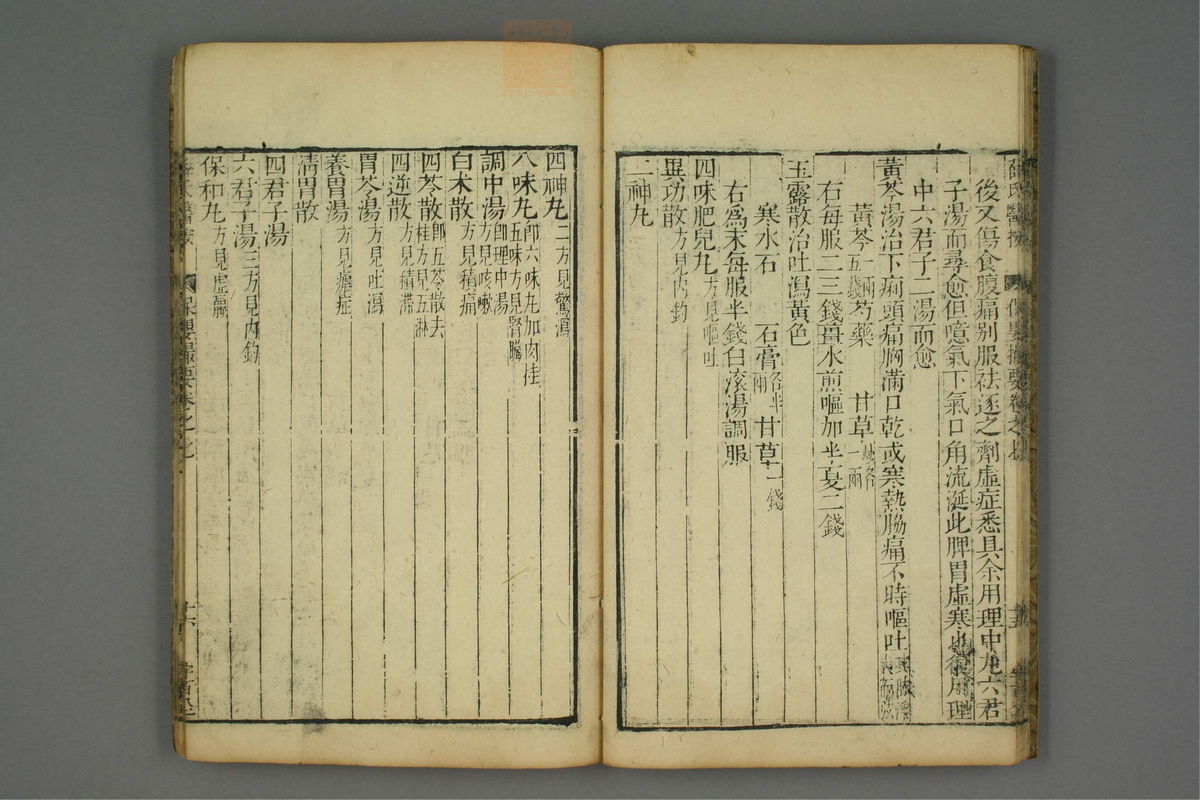 後又傷食腹痛別服祛逐之劑虛症悉具余用理中丸六君
子湯而尋愈但噫氣下氣口角流涎此脾胃虛寒也復用理
中六君子二湯而愈
黃芩湯治下痢頭痛胸滿口乾或寒熱脇痛不時嘔吐
黃芩一兩五錢 芍藥 甘草炒各一兩
右每服二三錢薑水煎嘔加半夏二錢
玉露散治吐瀉黃色
寒水石 石膏各半兩 甘草一錢
右為末每服半錢白滾湯調服
四味肥兒丸方見嘔吐
異功散方見內釣
二神丸
四神丸二方見驚瀉
八味丸即六味丸加肉桂五味方見腎臟
調中湯即理中湯方見咳嗽
白朮散方見積痛
四苓散即五苓散去桂方見五淋
四逆散方見積滯
胃苓湯方見吐瀉
養胃湯方見瘧症
清胃散
四君子湯
六君子湯三方見內釣
保和丸方見虛羸
薛氏醫按 保嬰撮要卷之七